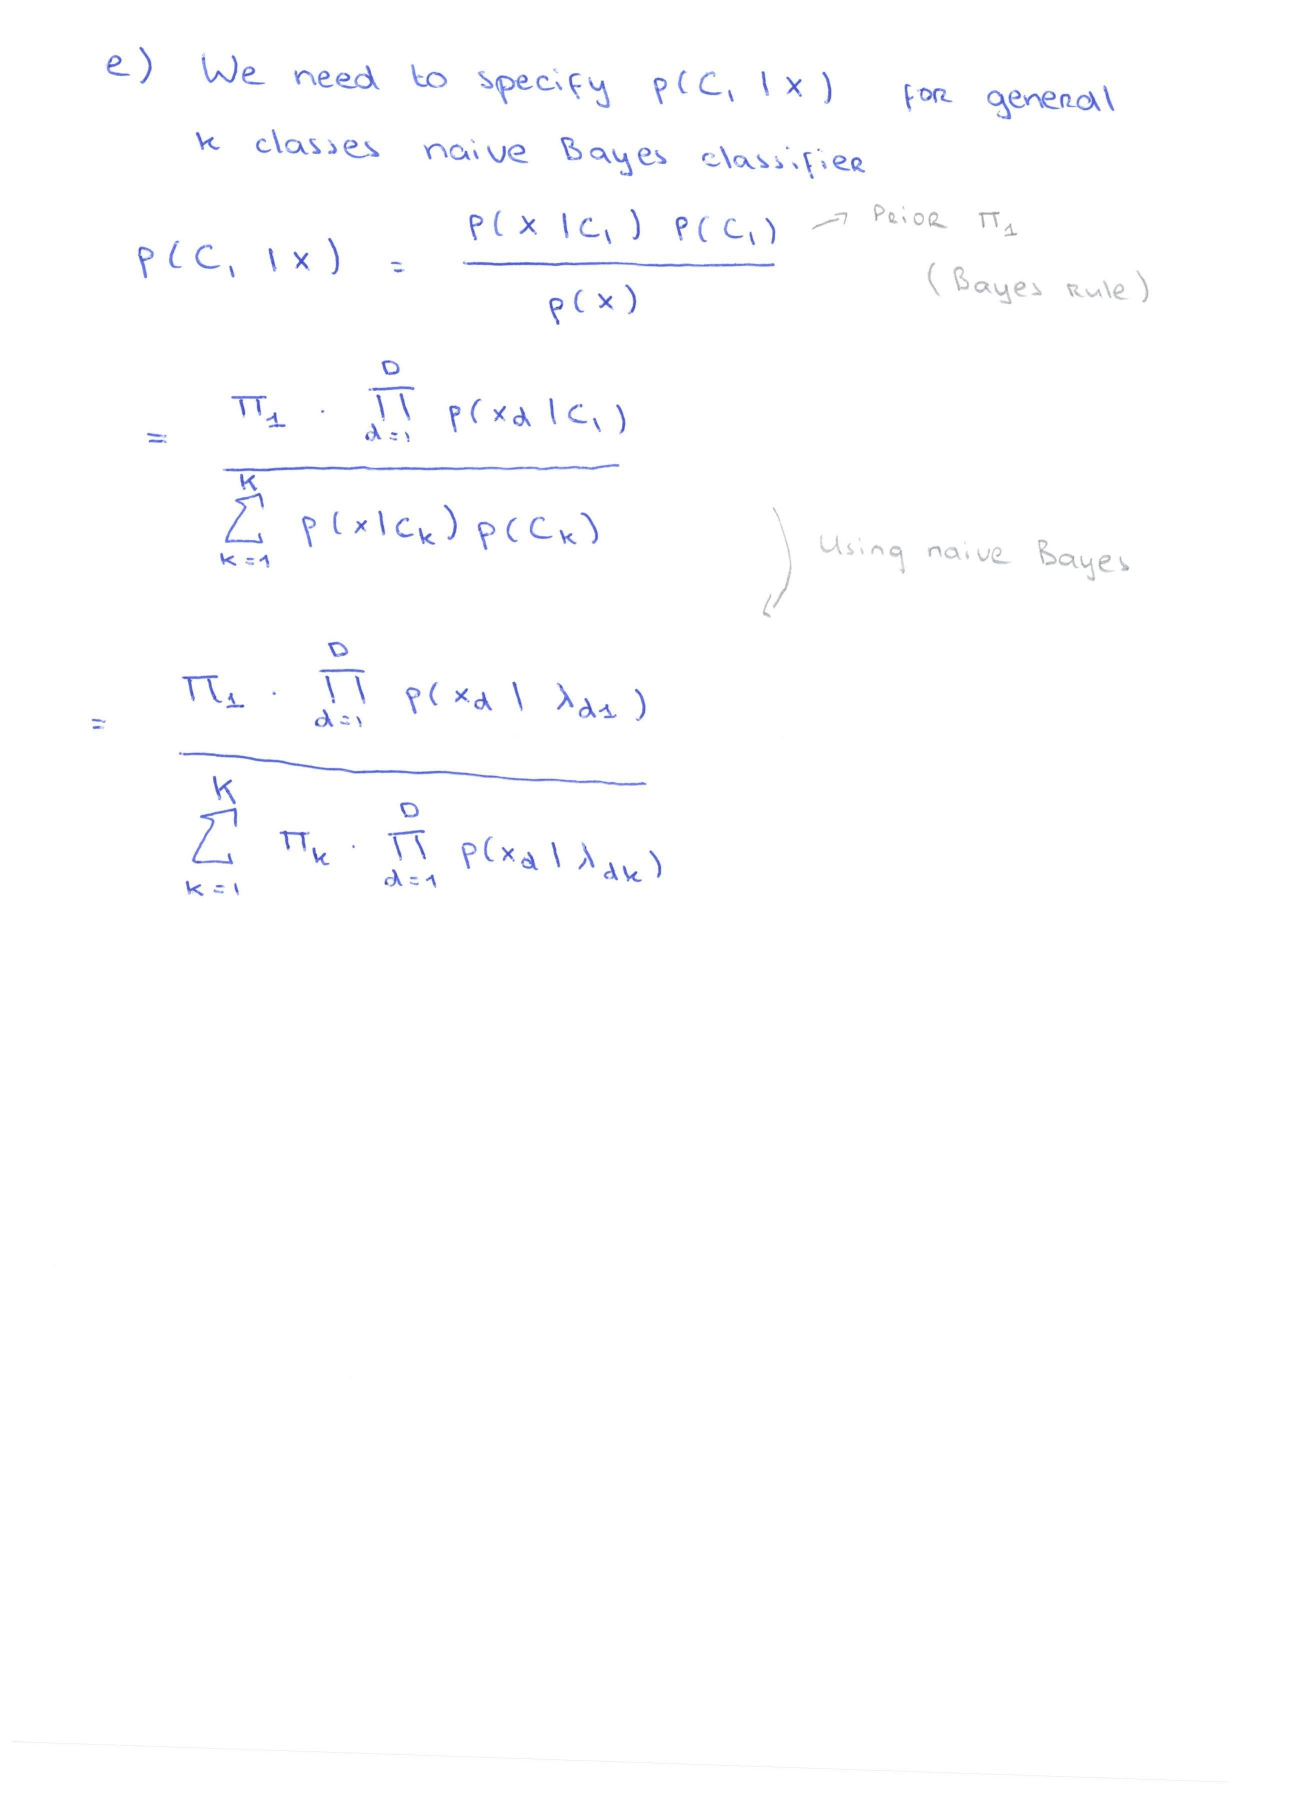 e) We need to specify p(C₁ | x) for general
k classes naive Bayes classifier
p(C₁ | x) = p(x | C₁) p(C₁) / p(x) → Prior π₁
(Bayes Rule)
= π₁ · ∏_{d=1}^{D} p(x_d | C₁) / ∑_{k=1}^{K} p(x | C_k) p(C_k)
Using naive Bayes
= π₁ · ∏_{d=1}^{D} p(x_d | λ_{d1}) / ∑_{k=1}^{K} π_k · ∏_{d=1}^{D} p(x_d | λ_{dk})